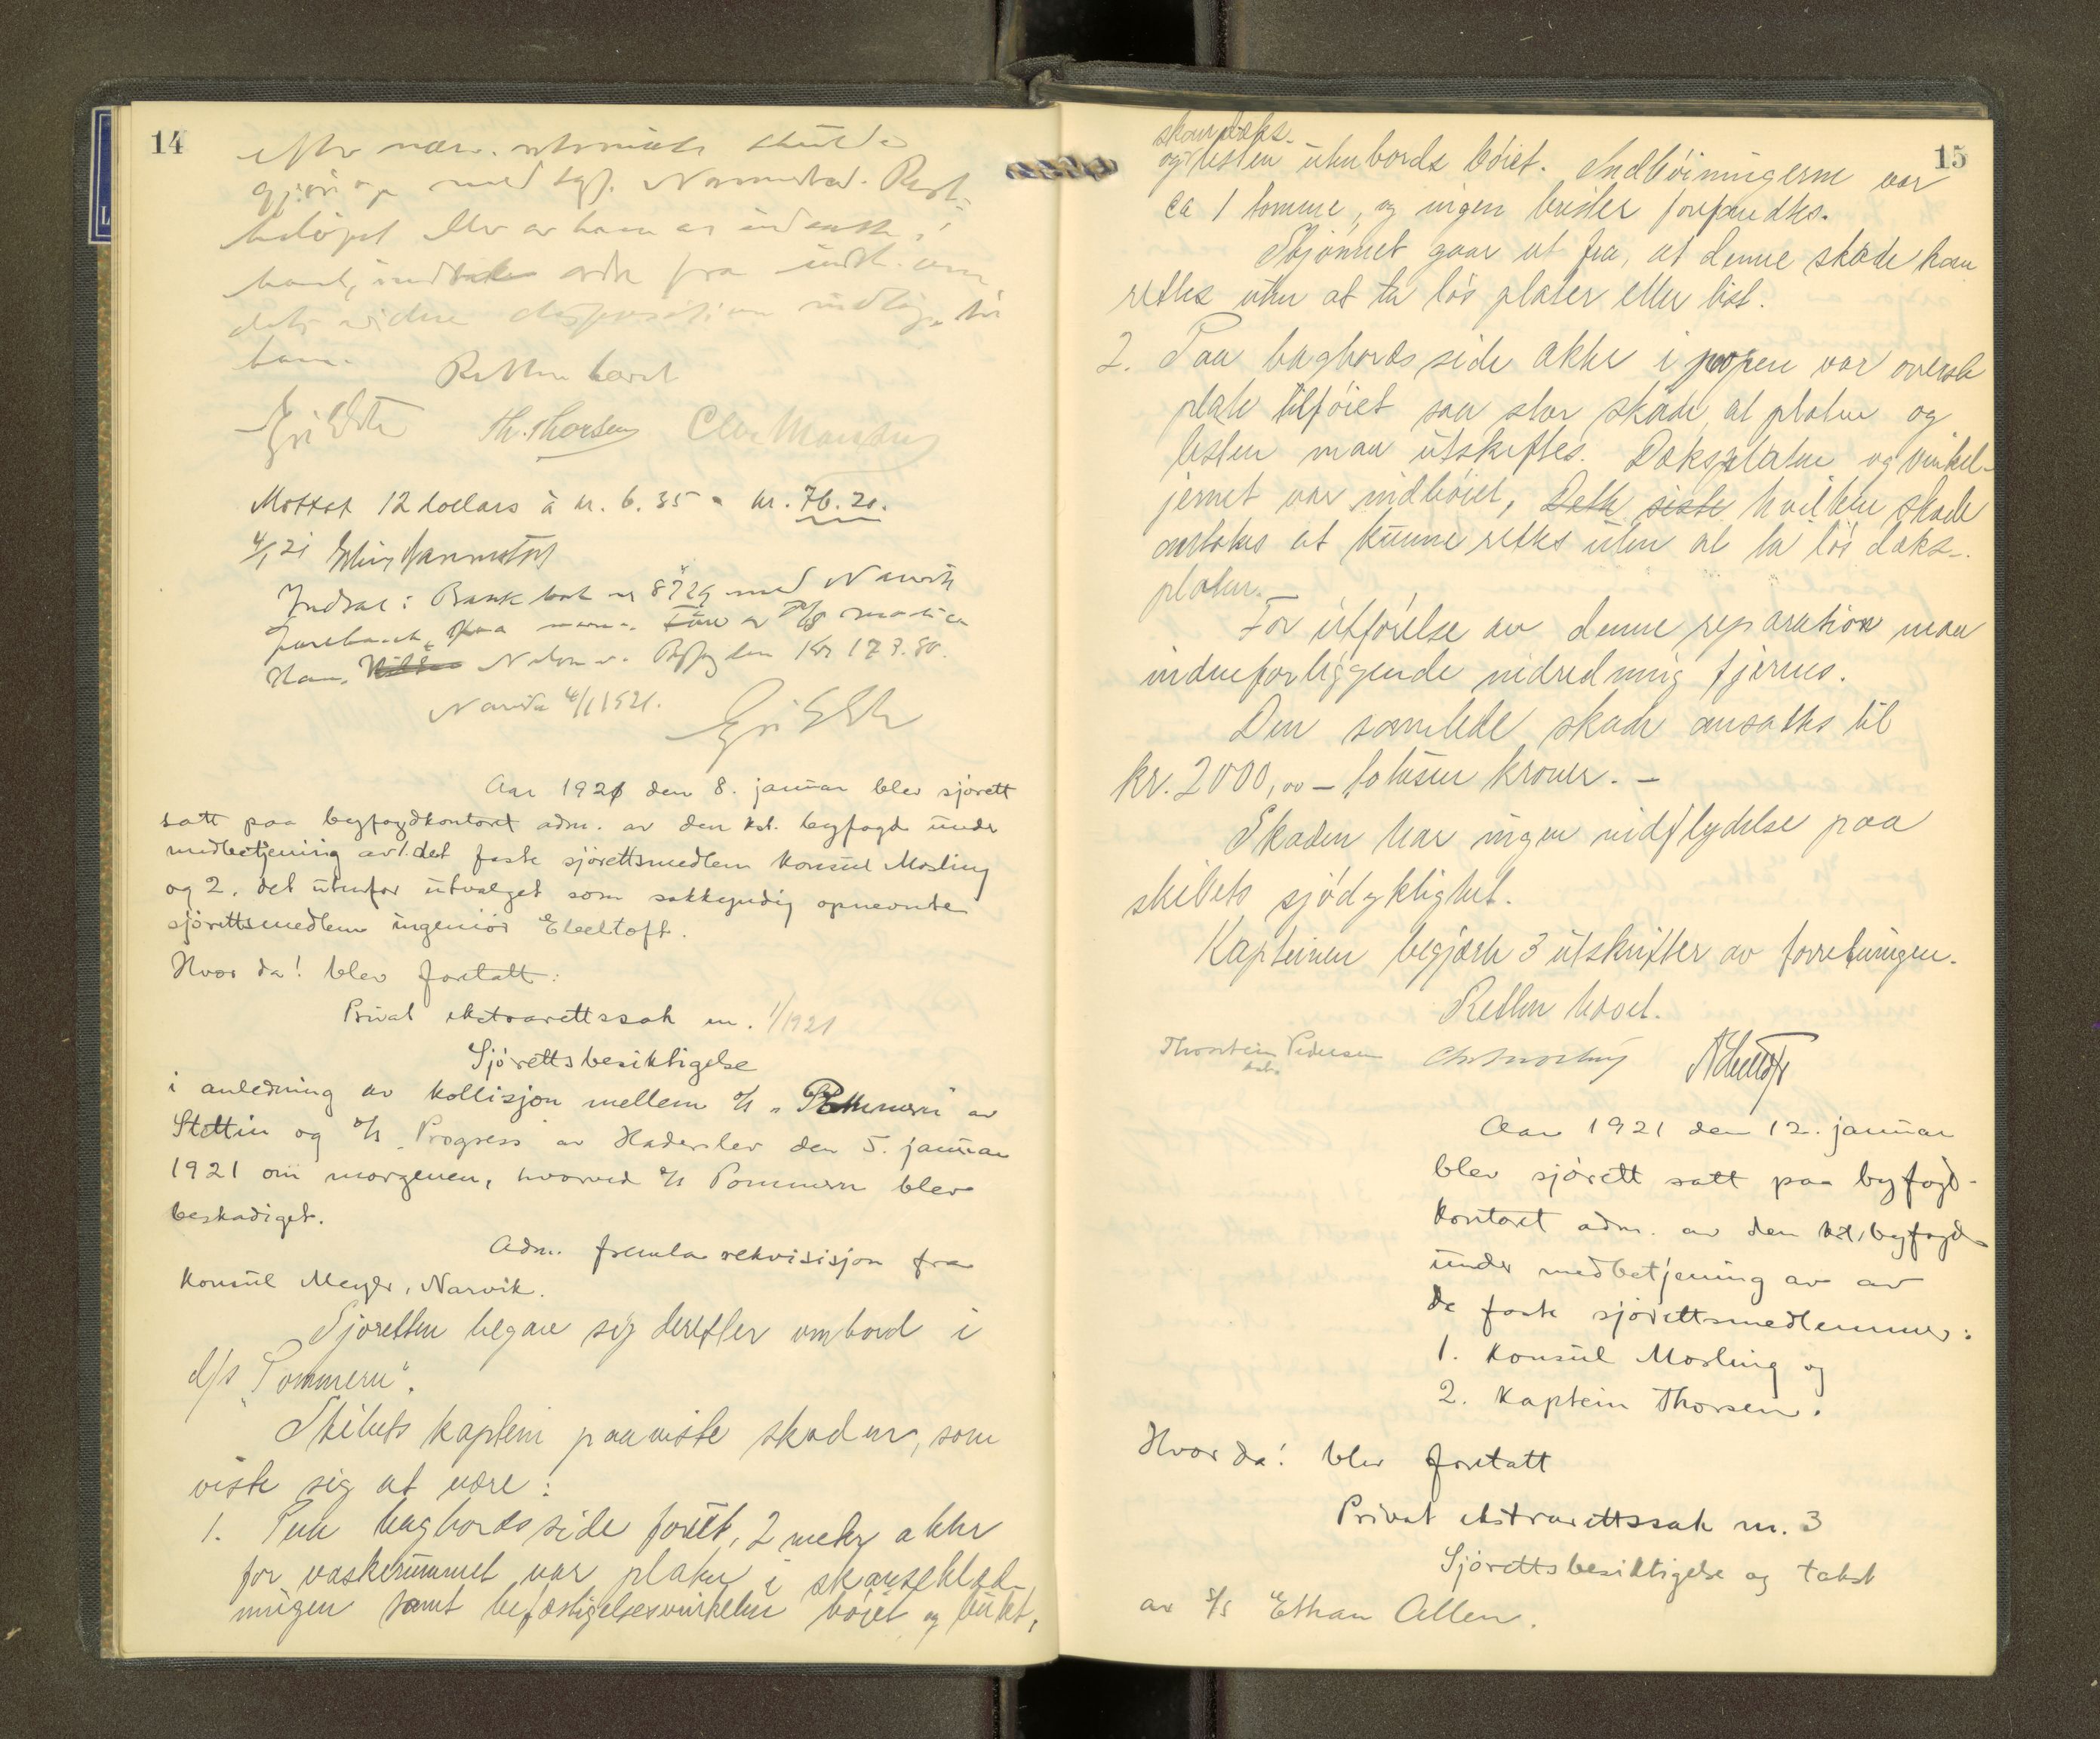 14
efter nærv. utskrift skulde
gjøre op med sgf. Rest-
beløpet eller av ham er indsatt i
bank, indtil ordre fra indst. om
dets videre disposition indløp. til
ham.
Retten hævet
Th. Thorsen
Mottat 12 dollars à kr. 6.35 = kr. 76.20.
4/1 21
Indsat: Bank bok nr 8729 med Narvik
Han. Nelson v. Kr 173.80.
Narvik 4/1 1921.
Aar 1921 den 8. januar blev sjørett
satt paa byfogdkontoret adm. av den kst. byfogd under
medbetjening av 1. det faste sjørettsmedlem konsul Mosling
og 2. det utenfor utvalget som sakkyndig opnevnte
sjørettsmedlem ingeniør Ebeltoft.
Hvor da! blev foretatt:
Privat ekstrarettssak nr. 1/1921
Sjørettsbesiktigelse
i anledning av kollisjon mellem d/s "Pommern" av
Stettin og d/s "Progress" av Haderslev den 5. januar
1921 om morgenen, hvorved d/s Pommern blev
beskadiget.
Adm. fremla rekvisisjon fra
konsul Meyer, Narvik.
Sjøretten begav sig derefter ombord i
d/s "Pommern".
Skibets kaptein paaviste skaden, som
viste sig at være:
1. Paa bagbords side forut, 2 meter akter
for vaskerummet var platen i skanseklæd-
ningen samt befæstigelsesvinkelen bøiet og bukt,
15
skandæks-
og listen utenbords bøiet. Indbøiningerne var
ca 1 tomme, og ingen brister forefandtes.
Skjønnet gaar ut fra, at denne skade kan
rettes uten at ta løs plater eller list.
2. Paa bagbords side akter i poopen var øverste
plate tilføiet saa stor skade at platen og
listen maa utskiftes. Dæksplaten og vinkel-
jernet var indbøiet, Dette siste hvilken skade
antokes at kunne rettes uten at ta løs dæks-
platen.
For utførelse av denne reparation maa
indenforliggende indredning fjernes.
Den samlede skade ansattes til
kr. 2000,00 – totusen kroner. –
Skaden har ingen indflydelse paa
skibets sjødyktighet.
Kapteinen begjærte 3 utskrifter av forretningen.
Retten hævet.
Thorstein Pedersen
kst.
Chr Mosling
AEbeltoft
Aar 1921 den 12. januar
blev sjørett satt paa byfogd-
kontoret adm. av den kst. byfogd
under medbetjening av av
de faste sjørettsmedlemmer:
1. Konsul Mosling og
2. Kaptein Thorsen.
Hvor da! blev foretatt
Privat ekstrarettssak nr. 3
Sjørettsbesiktigelse og takst
av s/s "Ethan Allen.